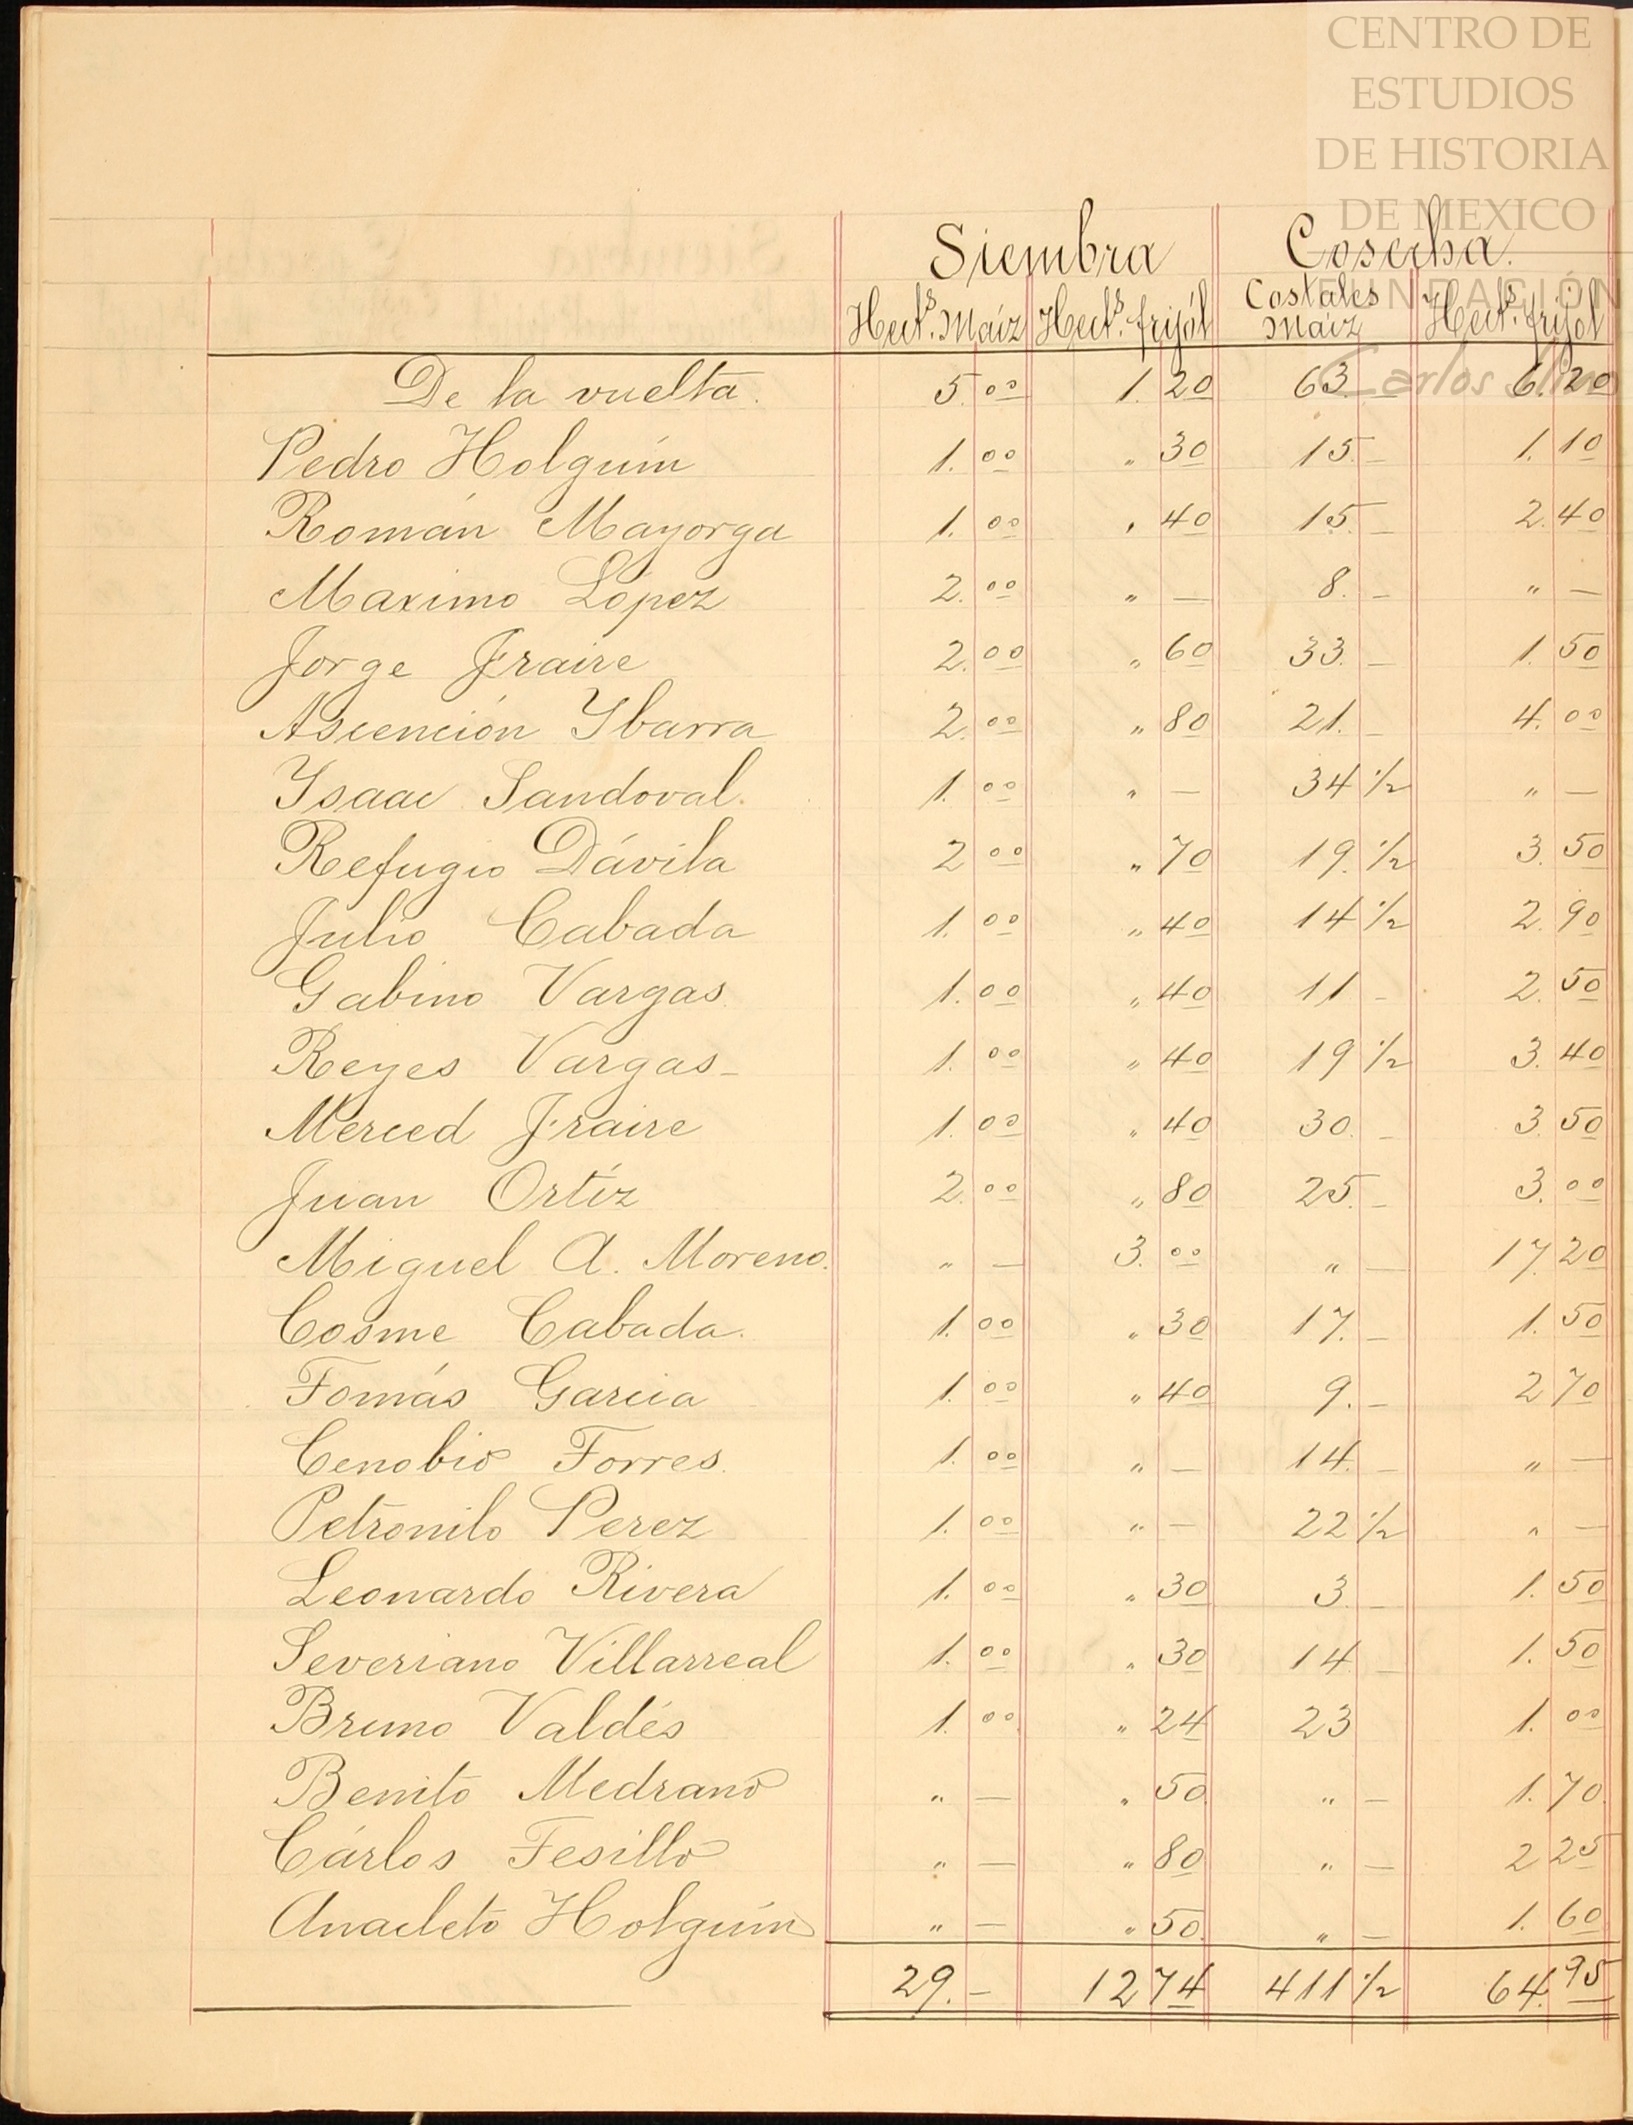 CENTRO DE
ESTUDIOS
DE HISTORIA
DE MEXICO
FUNDACIÓN
Carlos Slim
Siembra Cosecha.
Hect.s Maíz Hect.s frijól Costales Maíz Hect.s frijol
De la vuelta. 5.00 1.20 63.– 6.20
Pedro Holguín 1.00 „ 30 15.– 1.10
Román Mayorga 1.00 „ 40 15.– 2.40
Maximo López 2.00 „ — 8.– „ —
Jorge Fraire 2.00 „ 60 33.– 1.50
Ascención Ybarra 2.00 „ 80 21.– 4.00
Ysaac Sandoval. 1.00 „ — 34 1/2 „ —
Refugio Dávila 2 00 „ 70 19. 1/2 3.50
Julio Cabada 1.00 „ 40 14 1/2 2.90
Gabino Vargas. 1.00 „ 40 11 – 2.50
Reyes Vargas– 1.00 „ 40 19 1/2 3.40
Merced Fraire 1.00 „ 40 30.– 3.50
Juan Ortíz 2.00 „ 80 25.– 3.00
Miguel A. Moreno. „ — 3.00 „ — 17.20
Cosme Cabada. 1.00 „ 30 17.– 1.50
Tomás Garcia 1.00 „ 40 9.– 2 70
Cenobio Torres. 1.00 „ — 14.– „ —
Petronilo Perez 1.00 „ — 22 1/2 „ —
Leonardo Rivera 1.00 „ 30 3 – 1.50
Severiano Villarreal 1.00 „ 30 14 – 1.50
Bruno Valdés 1.00 „ 24 23 1.00
Benito Medrano „ — „ 50 „ — 1.70
Cárlos Tesillo „ — „ 80 „ — 2 25
Anacleto Holguín „ — „ 50 „ — 1.60
29.– 12 74 411 1/2 64.95